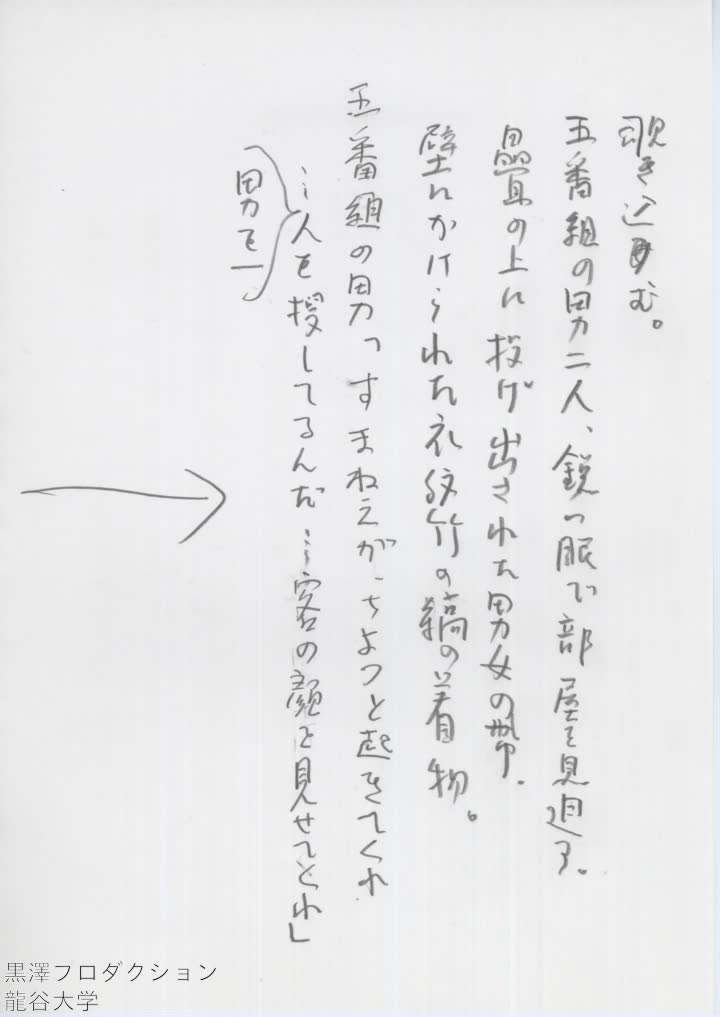 覗き込む。
五番組の男二人、鋭い眼で部屋を見廻す。
畳の上に投げ出された男女の帯。
壁にかけられた衣紋竹の縞の着物。
五番組の男「すまねえが、ちょっと起きてくれ
…人を捜してるんだ…客の顔を見せてくれ」
男を―
黒澤プロダクション
龍谷大学